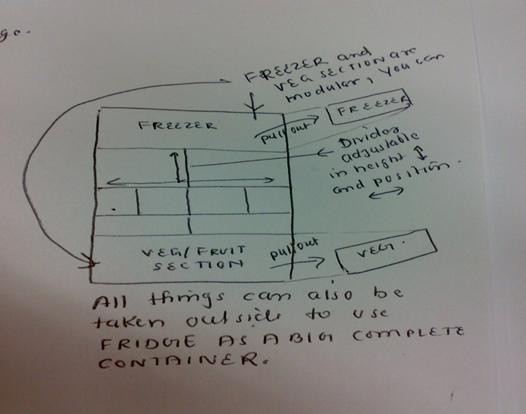 ge.
FREEZER and
VEG SECTION are
modular, you can
FREEZER
pullout
FREEZER
Divider
adjustable
in height
and position.
VEG/FRUIT
SECTION
pullout
VEGT.
All things can also be
taken outside to use
FRIDGE AS A BIG COMPLETE
CONTAINER.